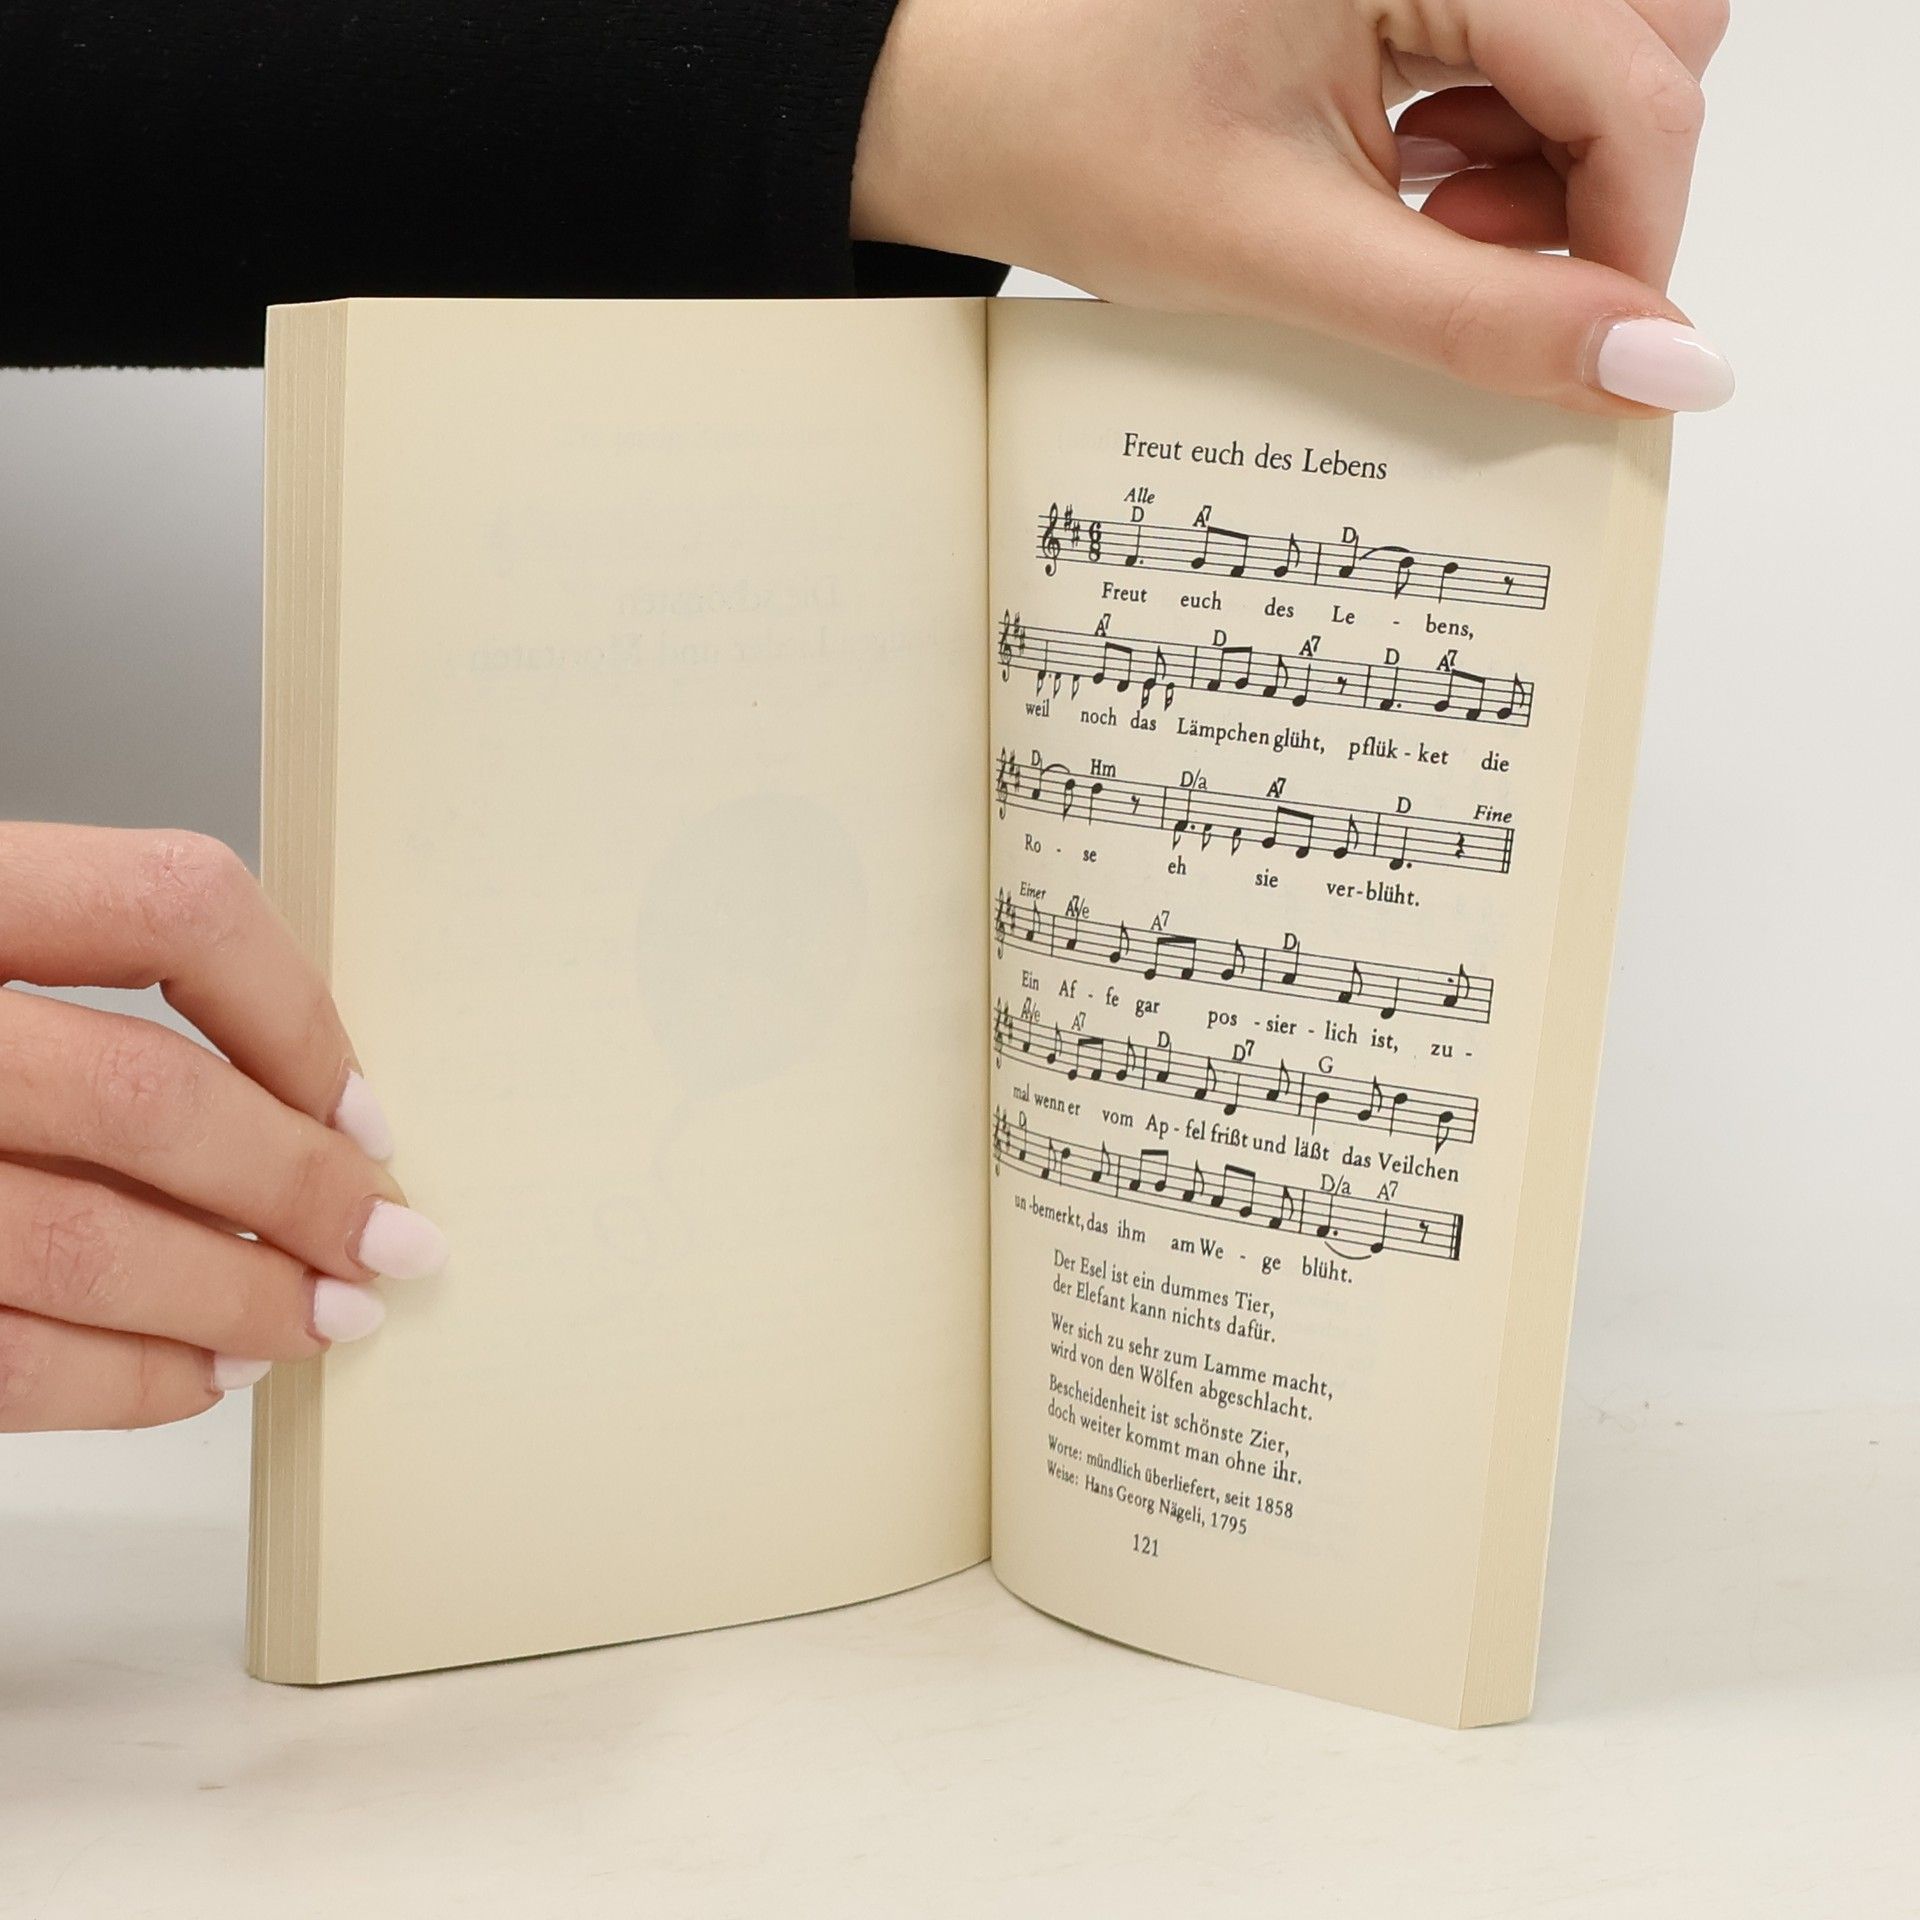 Freut euch des Lebens
Alle
D A7 D
Freut euch des Le - bens,
A7 D A7 D A7
weil noch das Lämpchen glüht, pflük - ket die
D Hm D/a A7 D Fine
Ro - se eh sie ver - blüht.
Einer A7/e A7 D
Ein Af - fe gar pos - sier - lich ist, zu -
A7/e A7 D D7 G
mal wenn er vom Ap - fel frißt und läßt das Veilchen
D D/a A7
un - bemerkt, das ihm am We - ge blüht.
Der Esel ist ein dummes Tier,
der Elefant kann nichts dafür.
Wer sich zu sehr zum Lamme macht,
wird von den Wölfen abgeschlacht.
Bescheidenheit ist schönste Zier,
doch weiter kommt man ohne ihr.
Worte: mündlich überliefert, seit 1858
Weise: Hans Georg Nägeli, 1795
121